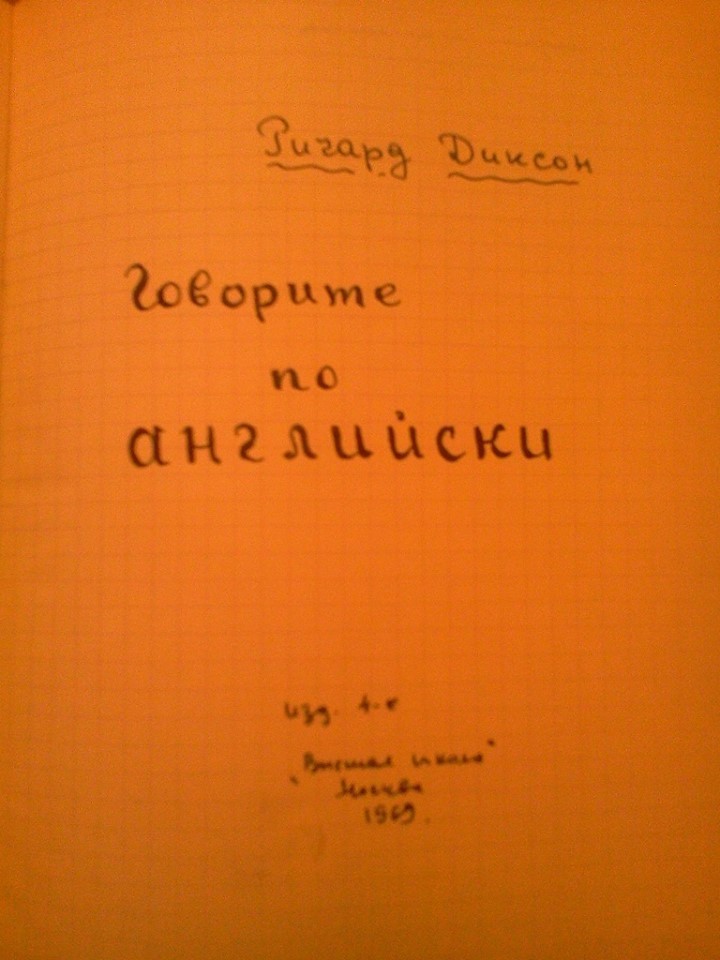 Ричард Диксон
Говорите
по
английски
изд. 4-е
"Высшая школа"
Москва
1969.